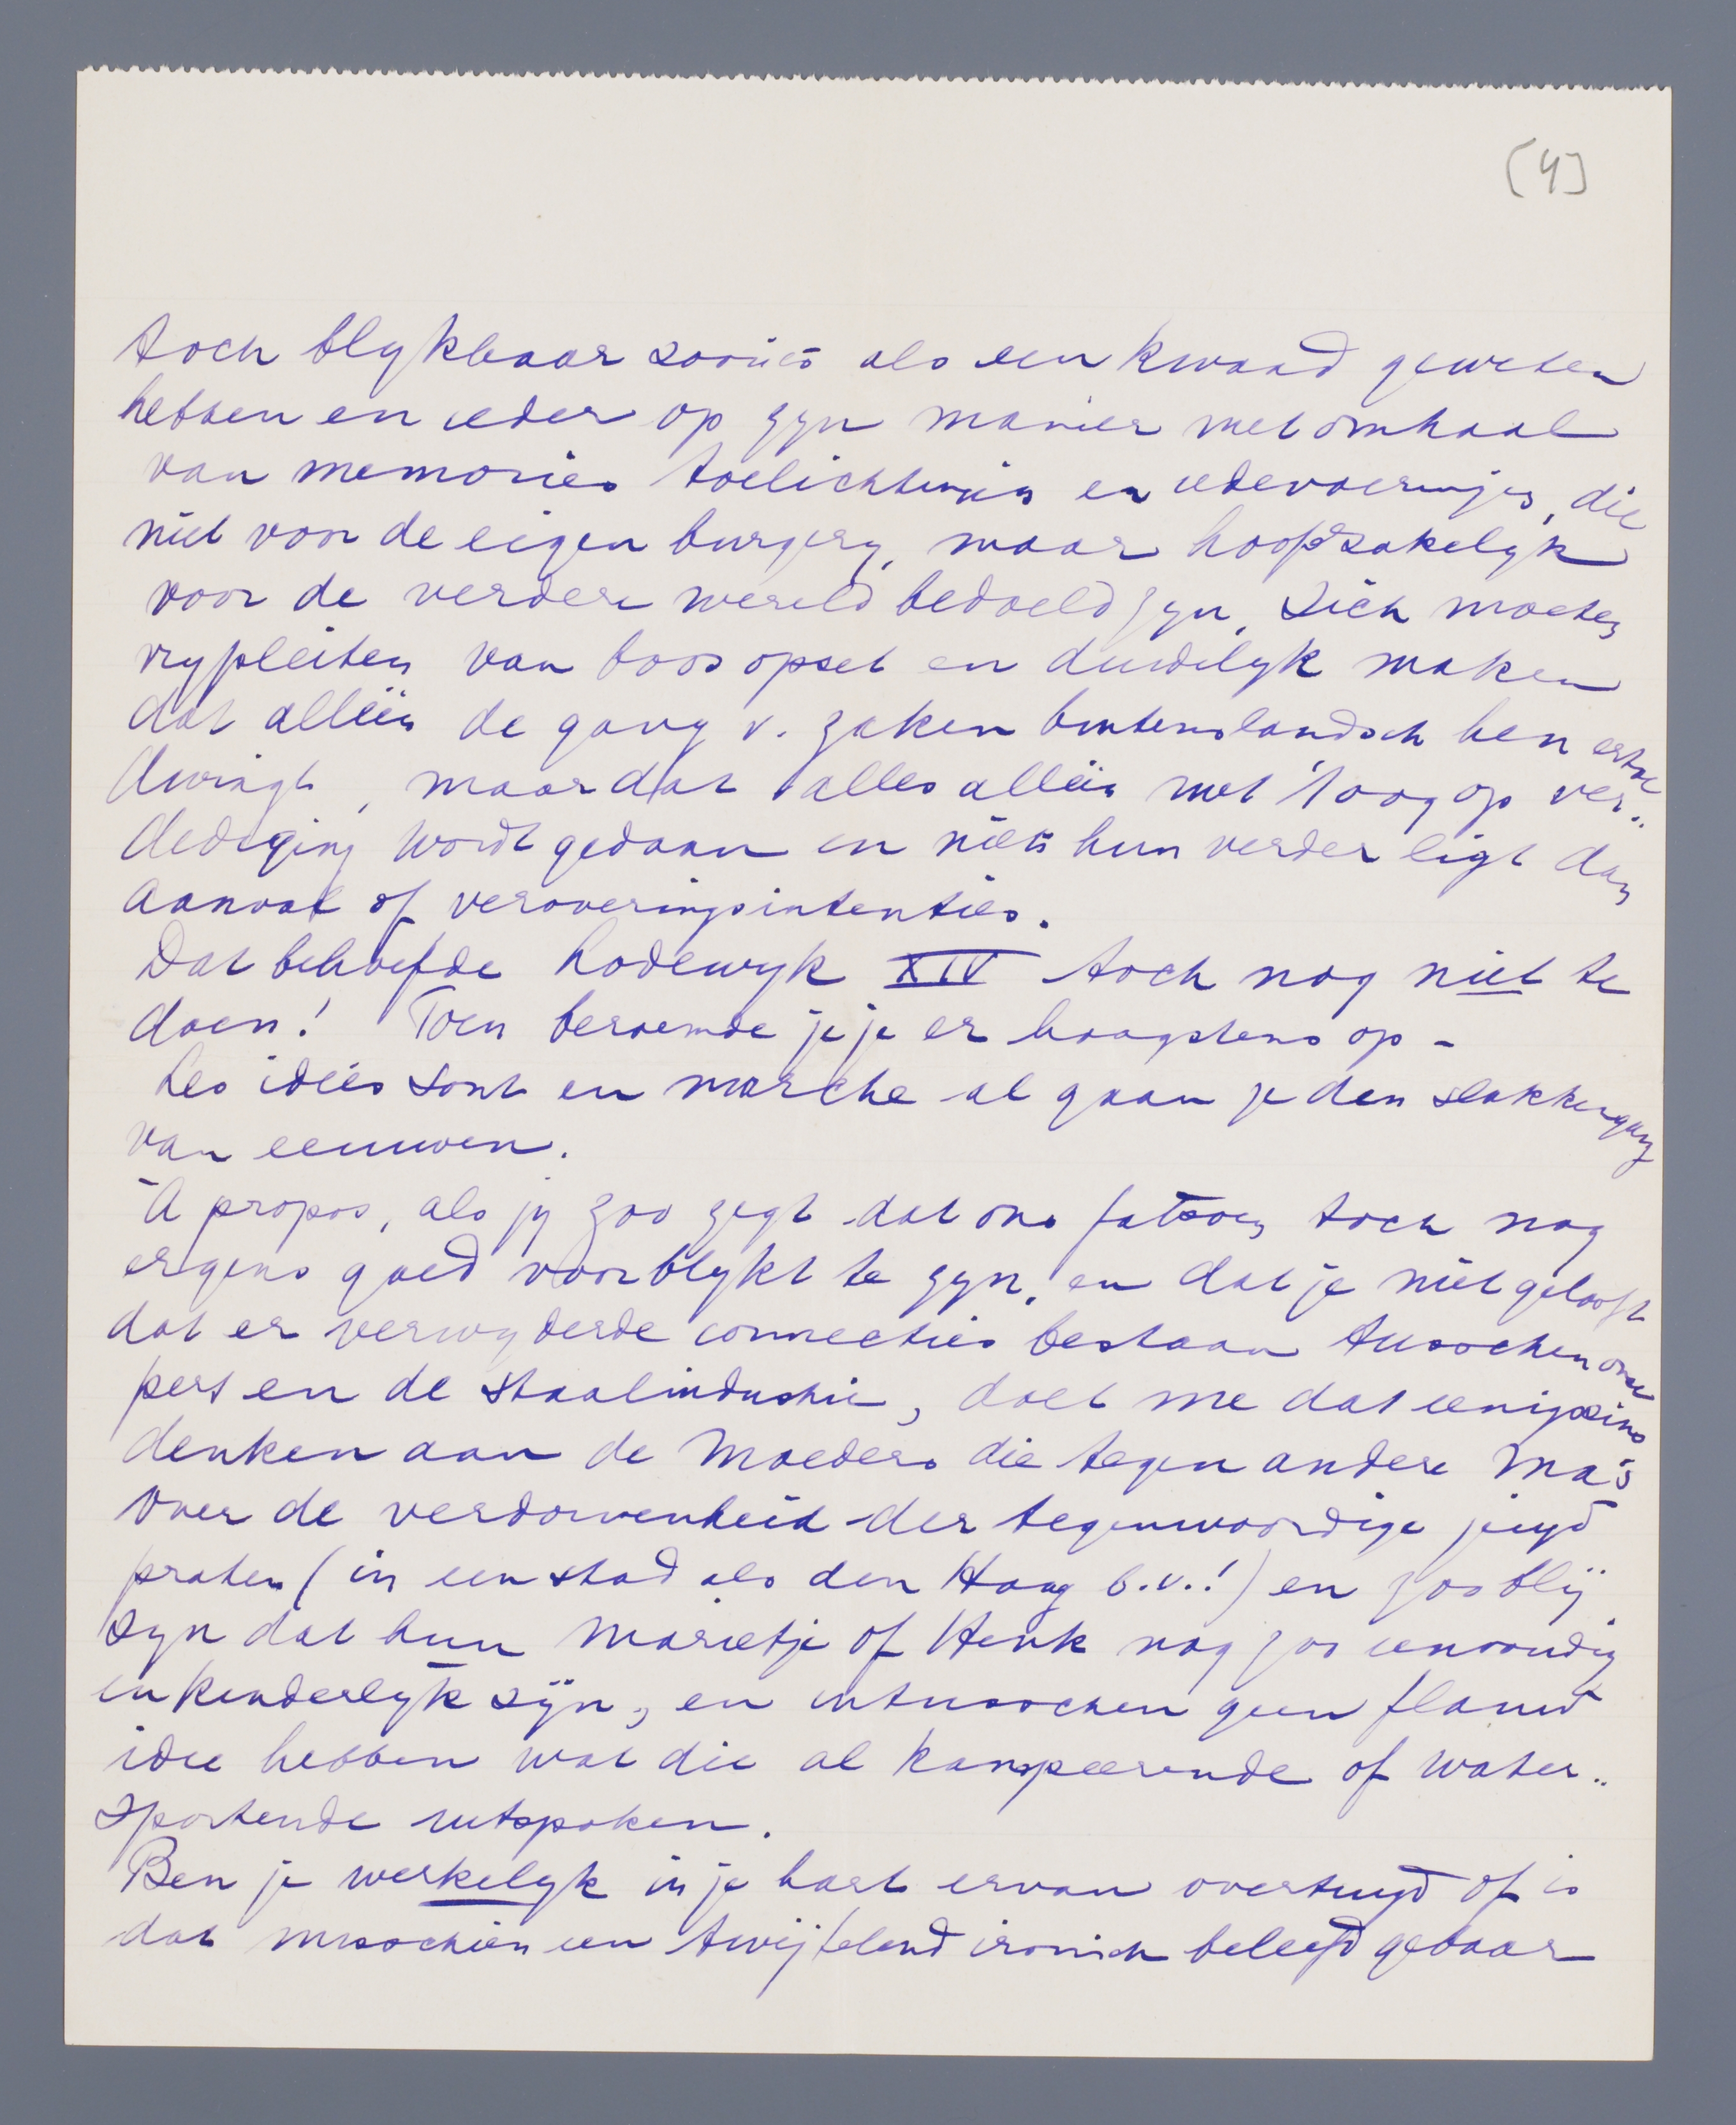 [4]
toch blykbaar zooiets als een kwaad geweten
hebben en ieder op zyn manier met omhaal
van memories toelichting en redevoerinjes, die
niet voor de eigen burgery, maar hoofdzakelyk
voor de verdere wereld bedoeld zyn, zich moeten
vrypleiten van boos opzet en duidelyk maken
dat alléén de gang v. zaken buitenslandsch hen ertoe
dwingt, maar dat alles alléén met 't oog op ver..
dediging wordt gedaan en niets hun verder ligt dan
aanval of veroveringsintenties.
Dat behoefde Lodewyk XIV toch nog niet te
doen! Toen beroemde je je er hoogstens op -
Les idées sont en marche al gaan ze den slakkengang
van eeuwen.
À propos, als jy zoo zegt dat ons fatsoen toch nog
ergens goed voor blykt te zyn, en dat je niet gelooft
dat er verwyderde connecties bestaan tusschen onze
pers en de staalindustrie, doet me dat eenigszins
denken aan de Moeders die tegen andere Ma's
over de verdorvenheid der tegenwoordige jeugd
praten (in een stad als den Haag b.v.!) en zoo blij
zyn dat hun Marietje of Henk nog zoo eenvoudig
en kinderlyk zijn, en intusschen geen flauw
idee hebben wat die al kampeerende of water..
sportende uitspoken.
Ben je werkelyk in je hart ervan overtuigd of is
dat misschien een twijfelend ironisch beleefd gebaar